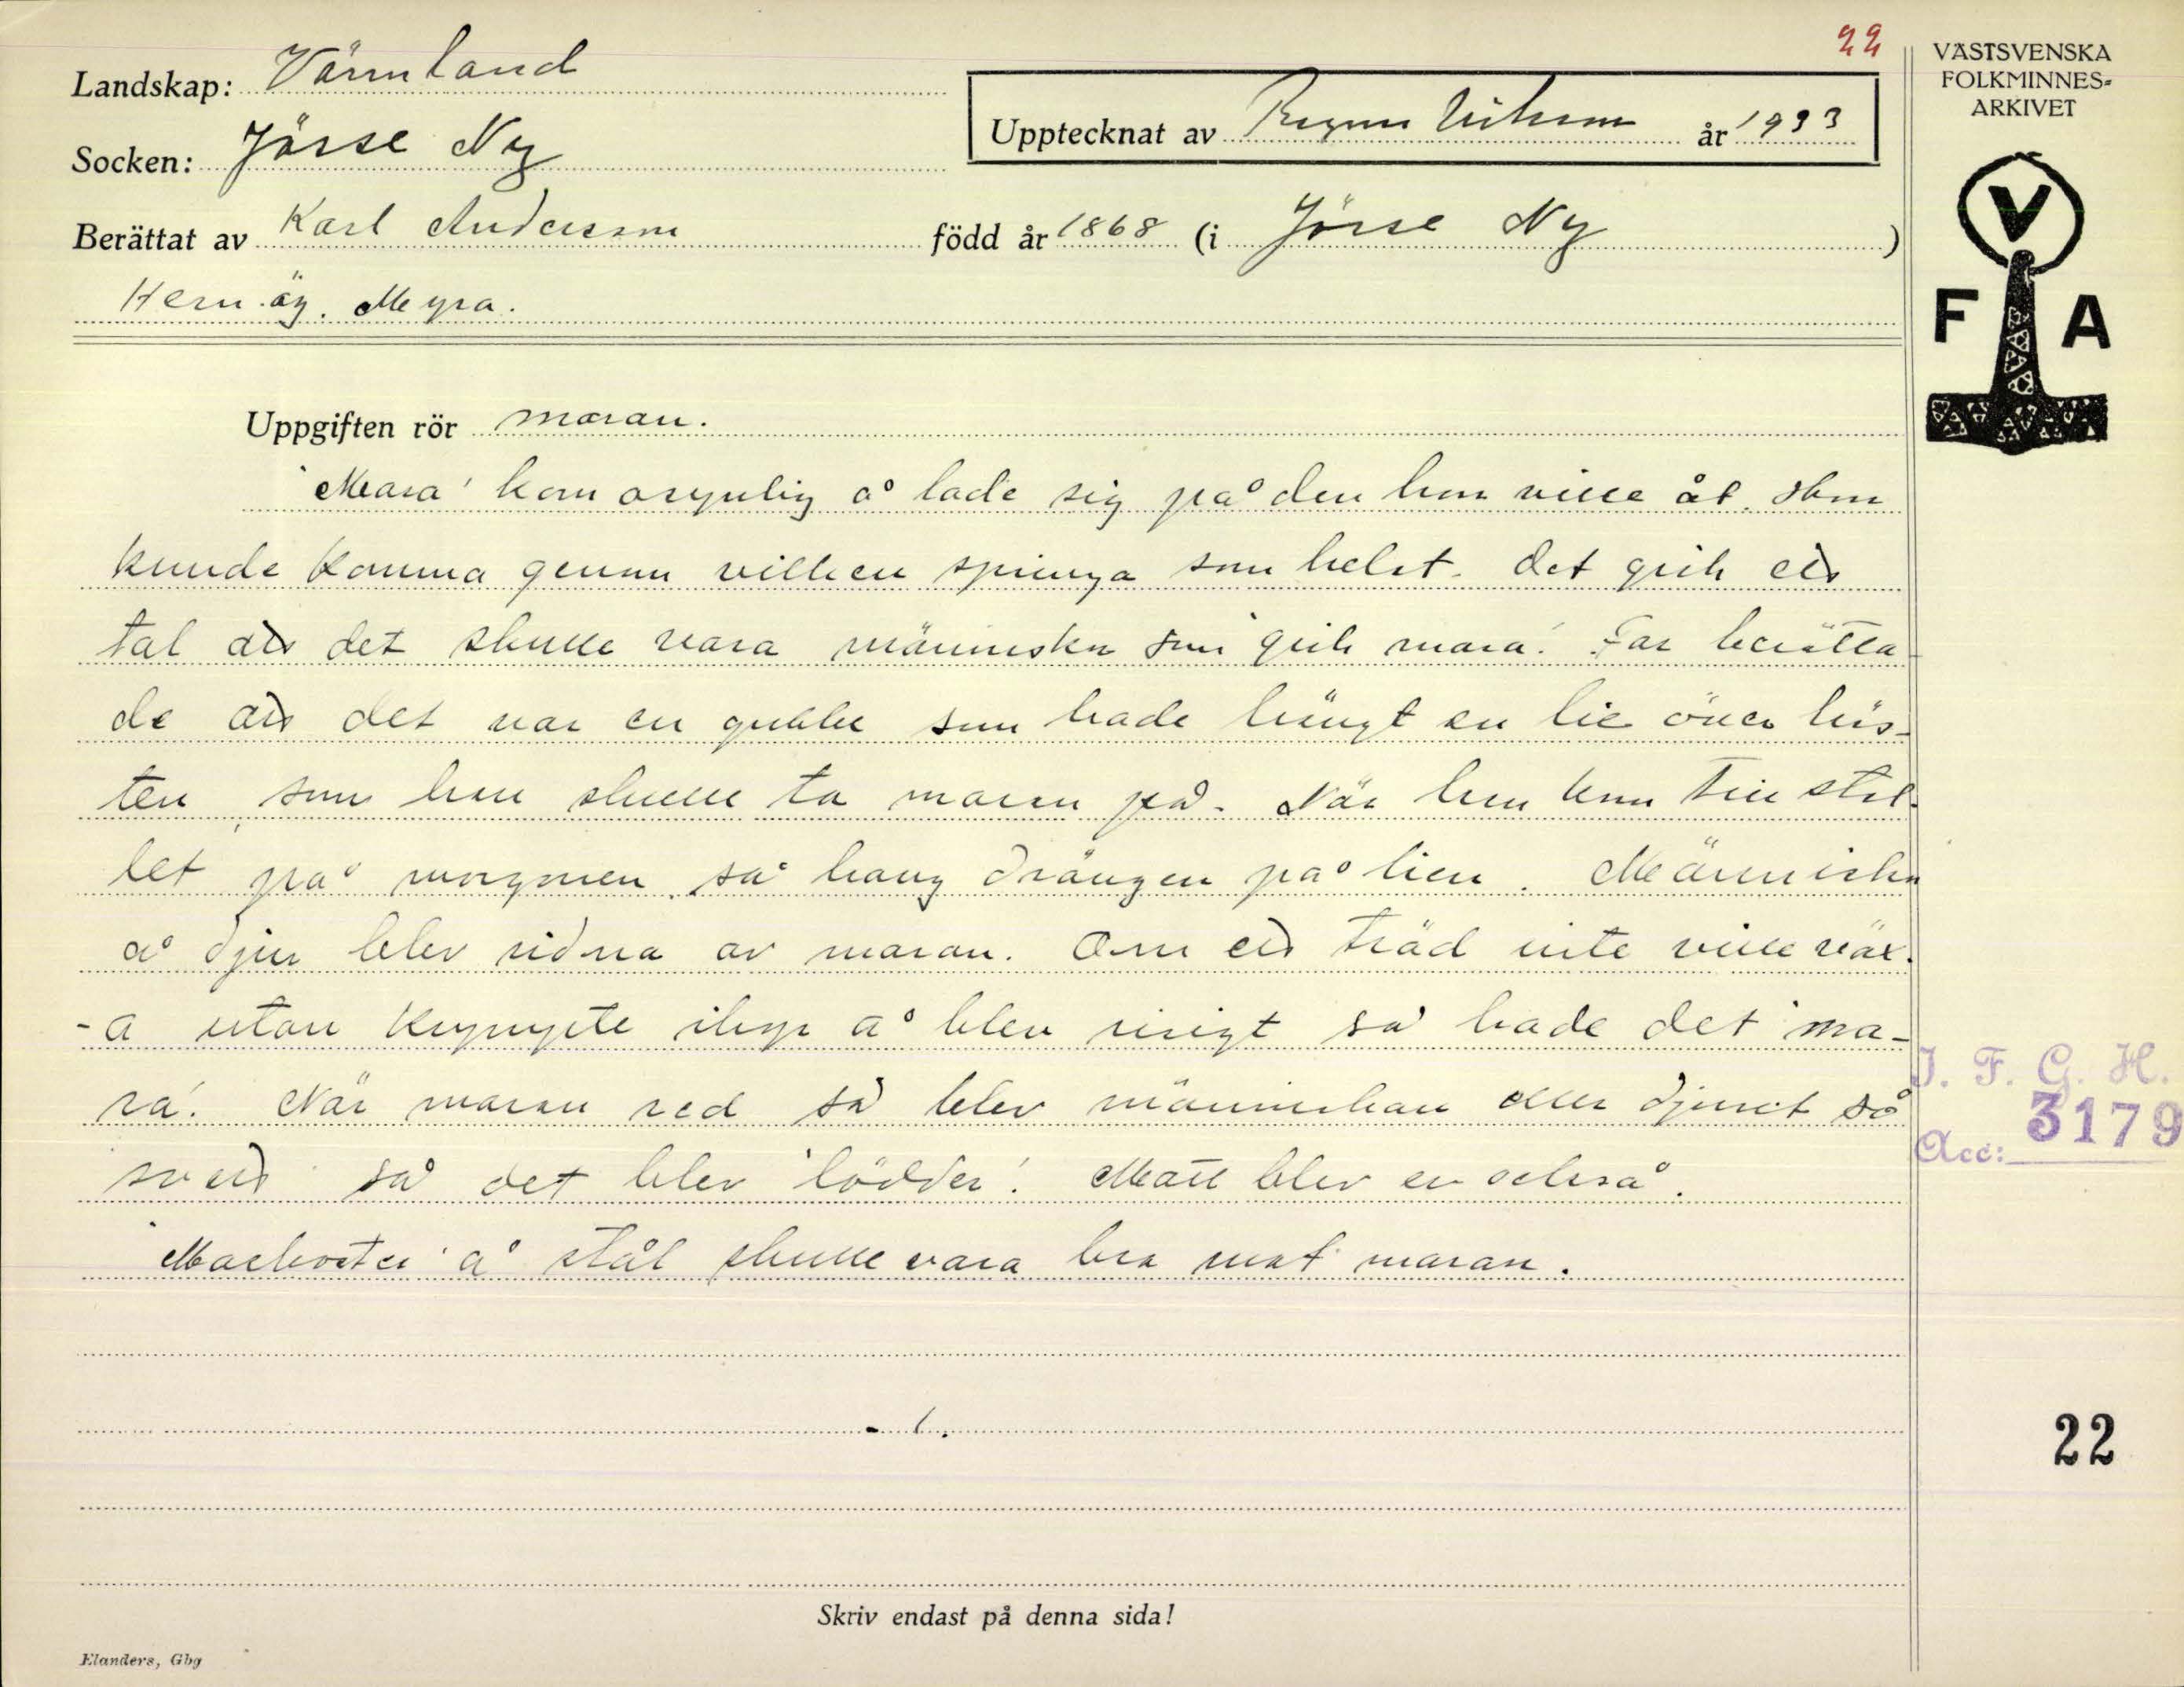 22
VÄSTSVENSKA
FOLKMINNES-
ARKIVET
Landskap: Värmland
Upptecknat av Ragnar Nilsson år 1933
Socken: Jösse Ny
Berättat av Karl Andersson född år 1868 (i Jösse Ny)
Hem.äg. Myra.
V
F A
Uppgiften rör maran.
'Mara' kom osynlig å lade sig på den hon ville åt. Hon
kunde komma genom vilken springa som helst. Det gick ett
tal att det skulle vara människor som 'gick mara'. Far berätta
de att det var en gubbe som hade hängt en lie över häs-
ten som han skulle ta maran på. När han kom till stal-
let på morgonen så hang drängen på lien. Människor
å djur blev ridna av maran. Om ett träd inte ville väx-
-a utan krympte ihop å blev risigt så hade det 'ma-
ra'. När maran red så blev människan eller djuret så
svett så det blev 'lödder'. Matt blev en också.
'Markvister' å stål skulle vara bra mot maran.
- /.
J. F. G. H.
Acc: 3179
22
Skriv endast på denna sida!
Elanders, Gbg